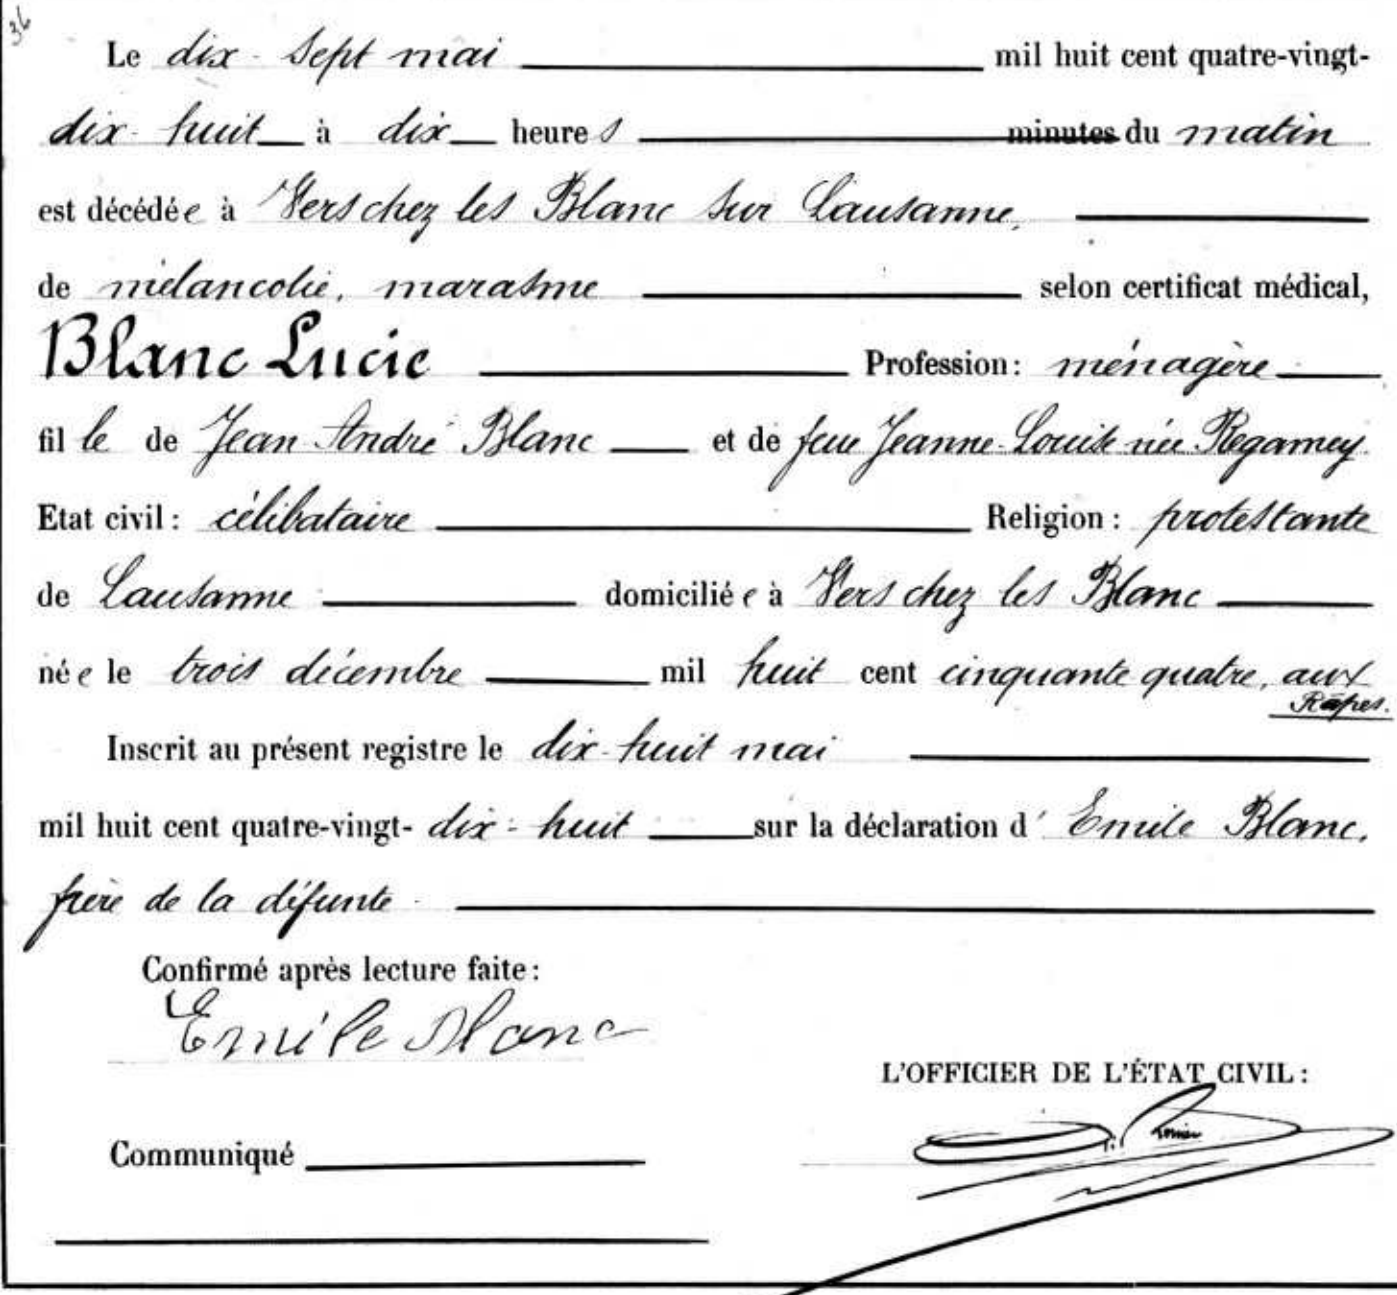 36
Le dix-sept mai mil huit cent quatre-vingt-
dix-huit à dix heures minutes du matin
est décédée à Vers chez les Blanc sur Lausanne,
de mélancolie, marasme selon certificat médical,
Blanc Lucie Profession: ménagère
fille de Jean André Blanc et de feue Jeanne-Louise née Regamey
Etat civil: célibataire Religion: protestante
de Lausanne domiciliée à Vers chez les Blanc
née le trois décembre mil huit cent cinquante quatre, aux
Râpes.
Inscrit au présent registre le dix-huit mai
mil huit cent quatre-vingt-dix-huit sur la déclaration d'Emile Blanc,
frère de la défunte
Confirmé après lecture faite:
Emile Blanc
L'OFFICIER DE L'ÉTAT CIVIL:
Communiqué